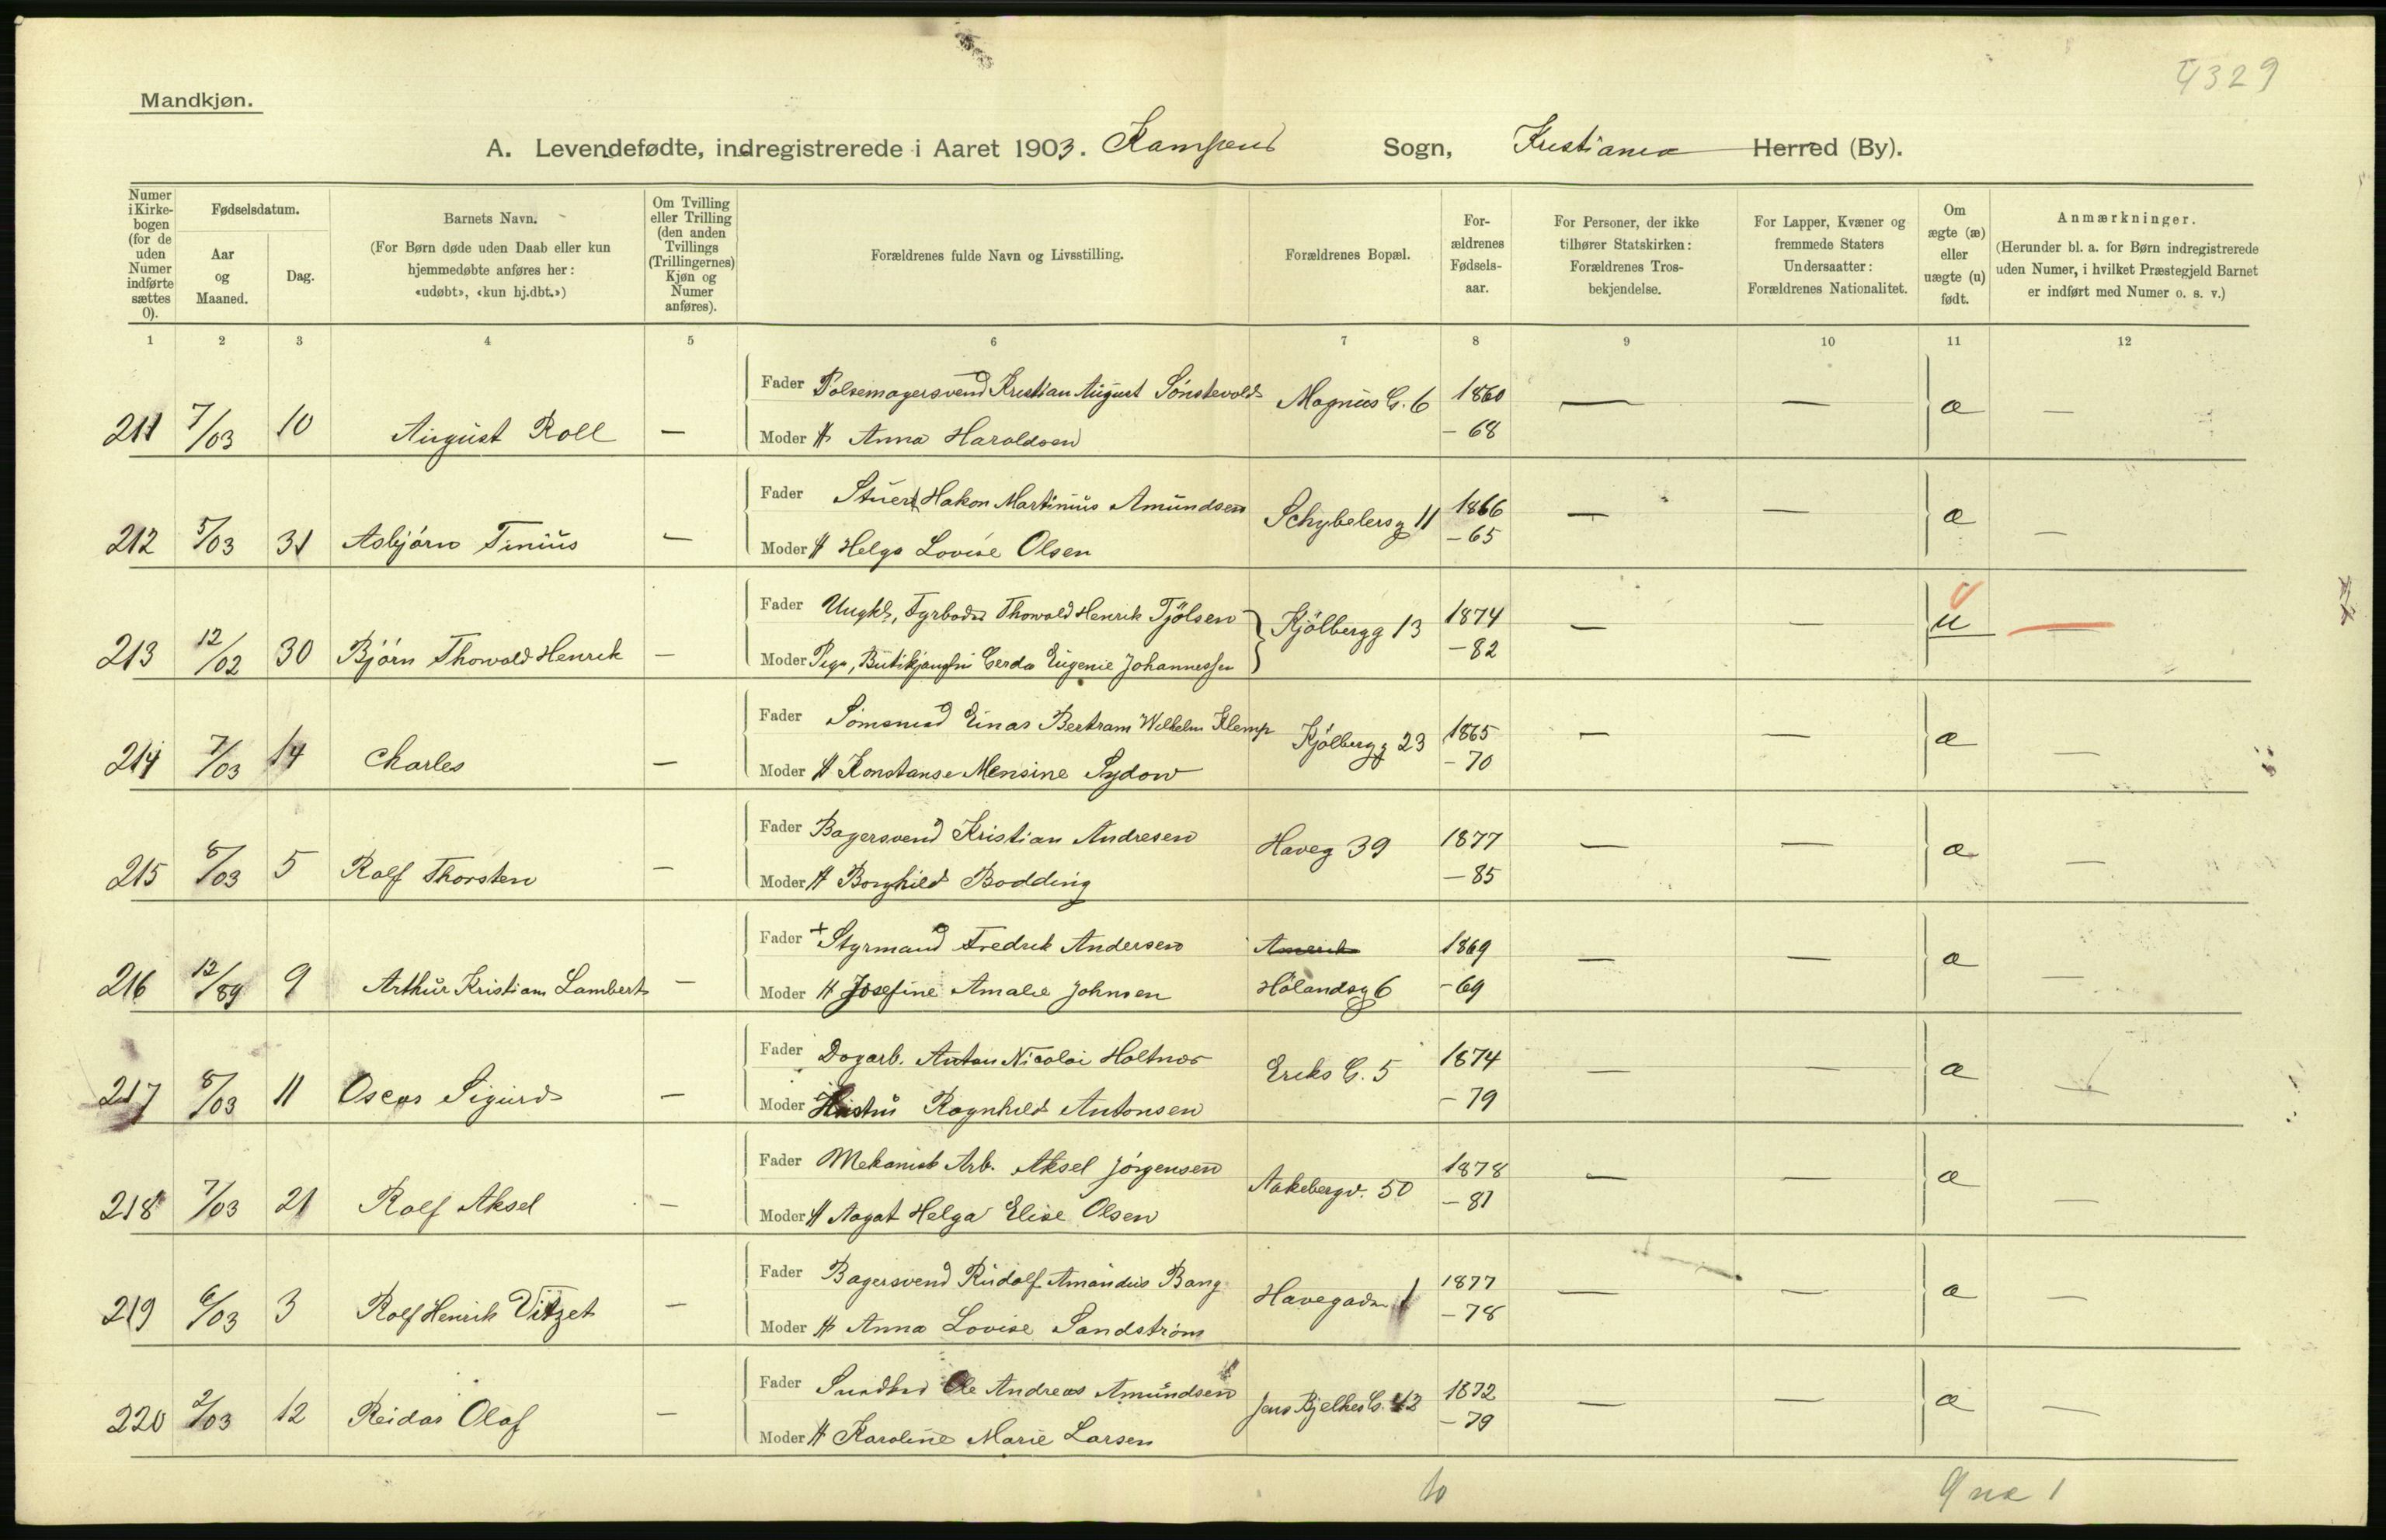 4329
Mandkjøn.
A. Levendefødte, indregistrerede i Aaret 1903. Kampens Sogn, Kristiania Herred (By).
Numer i Kirkebogen (for de uden Numer indførte sættes 0).
Fødselsdatum.
Aar og Maaned.
Dag.
Barnets Navn.
(For Børn døde uden Daab eller kun hjemmedøbte anføres her: «udøbt», «kun hj.dbt.»)
Om Tvilling eller Trilling (den anden Tvillings (Trillingernes) Kjøn og Numer anføres).
Forældrenes fulde Navn og Livsstilling.
Forældrenes Bopæl.
Forældrenes Fødselsaar.
For Personer, der ikke tilhører Statskirken: Forældrenes Trosbekjendelse.
For Lapper, Kvæner og fremmede Staters Undersaatter: Forældrenes Nationalitet.
Om ægte (æ) eller uægte (u) født.
Anmærkninger.
(Herunder bl. a. for Børn indregistrerede uden Numer, i hvilket Præstegjeld Barnet er indført med Numer o. s. v.)
1 2 3 4 5 6 7 8 9 10 11 12
Fader Pølsemagersvend Kristian August Sönstevold Magnus G. 6 1860
211 7/03 10 August Roll — — — æ —
Moder H Anna Haraldsen - 68
Fader Stuert Hakon Martinius Amundsen Schybelersg 11 1866
212 5/03 31 Asbjörn Tinius — — — æ —
Moder H Helga Lovise Olsen - 65
Fader Ungkl, Fyrböder Thorvald Henrik Tjölsen Kjölbergg 13 1874
213 12/02 30 Björn Thorvald Henrik — — — u —
Moder Pige, Butikjomfru Gerda Eugenie Johannessen - 82
Fader Einar Bertram Wilhelm Klemp Kjölbergg 23 1865
214 7/03 14 Charles — — — æ —
Moder H Konstanse Mensine Sydow - 70
Fader Bagersvend Kristian Andresen Haveg 39 1877
215 8/03 5 Rolf Thorsten — — — æ —
Moder H Borghild Bodding - 85
Fader + Styrmand Fredrik Andersen Amerik 1869
216 12/89 9 Arthur Kristian Lambert — — — æ —
Moder H Josefine Amalie Johnsen Hölandsg 6 - 69
Fader Dagarb. Anton Nicolai Holtnæs Eriks G. 5 1874
217 8/03 11 Oscar Sigurd — — — æ —
Moder Hustru Ragnhild Antonsen - 79
Fader Mekanisk Arb. Aksel Jörgensen Aakebergv. 50 1878
218 7/03 21 Rolf Aksel — — — æ —
Moder H Aagot Helga Elise Olsen - 81
Fader Bagersvend Rudolf Amandus Bang Havegaden 1 1877
219 6/03 3 Rolf Henrik Vitzet — — — æ —
Moder H Anna Lovise Sandström - 78
Fader Ole Andreas Amundsen Jens Bjelkes G. 42 1872
220 2/03 12 Reidar Olaf — — — æ —
Moder H Karoline Marie Larsen - 79
10 9 æ 1